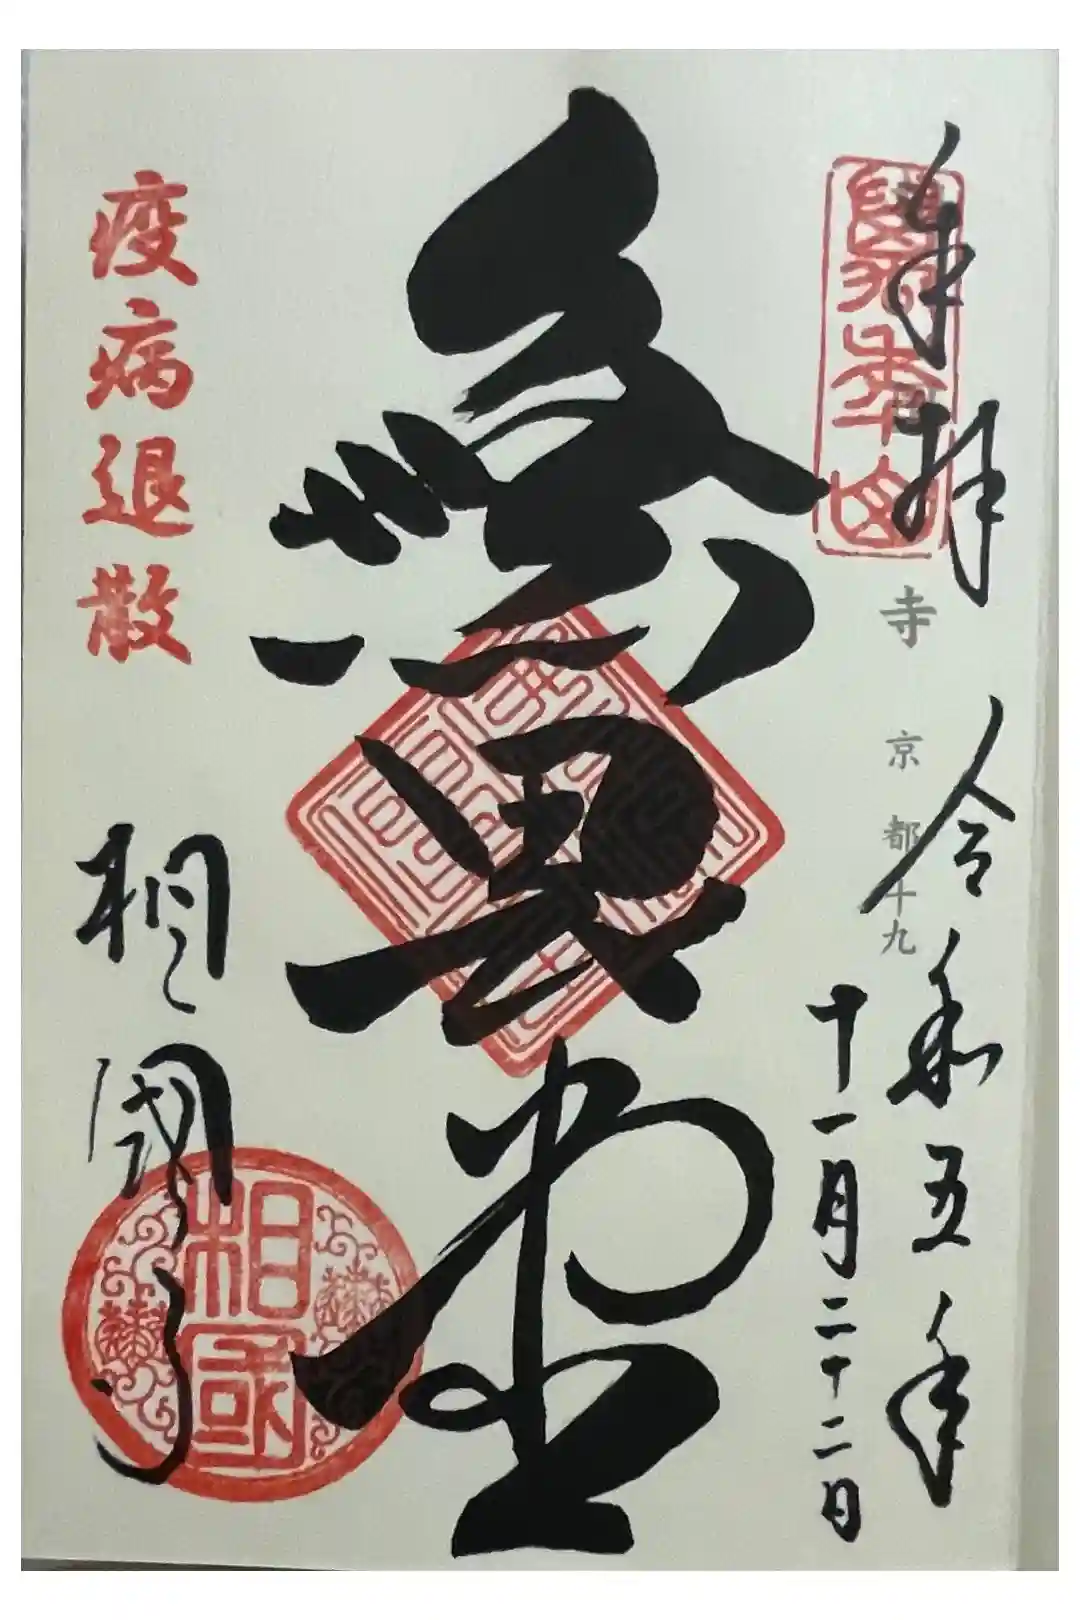 奉拝
令和五年
十一月二十二日
萬年山
寺 京都十九
無畏堂
疫病退散
相國寺
相國